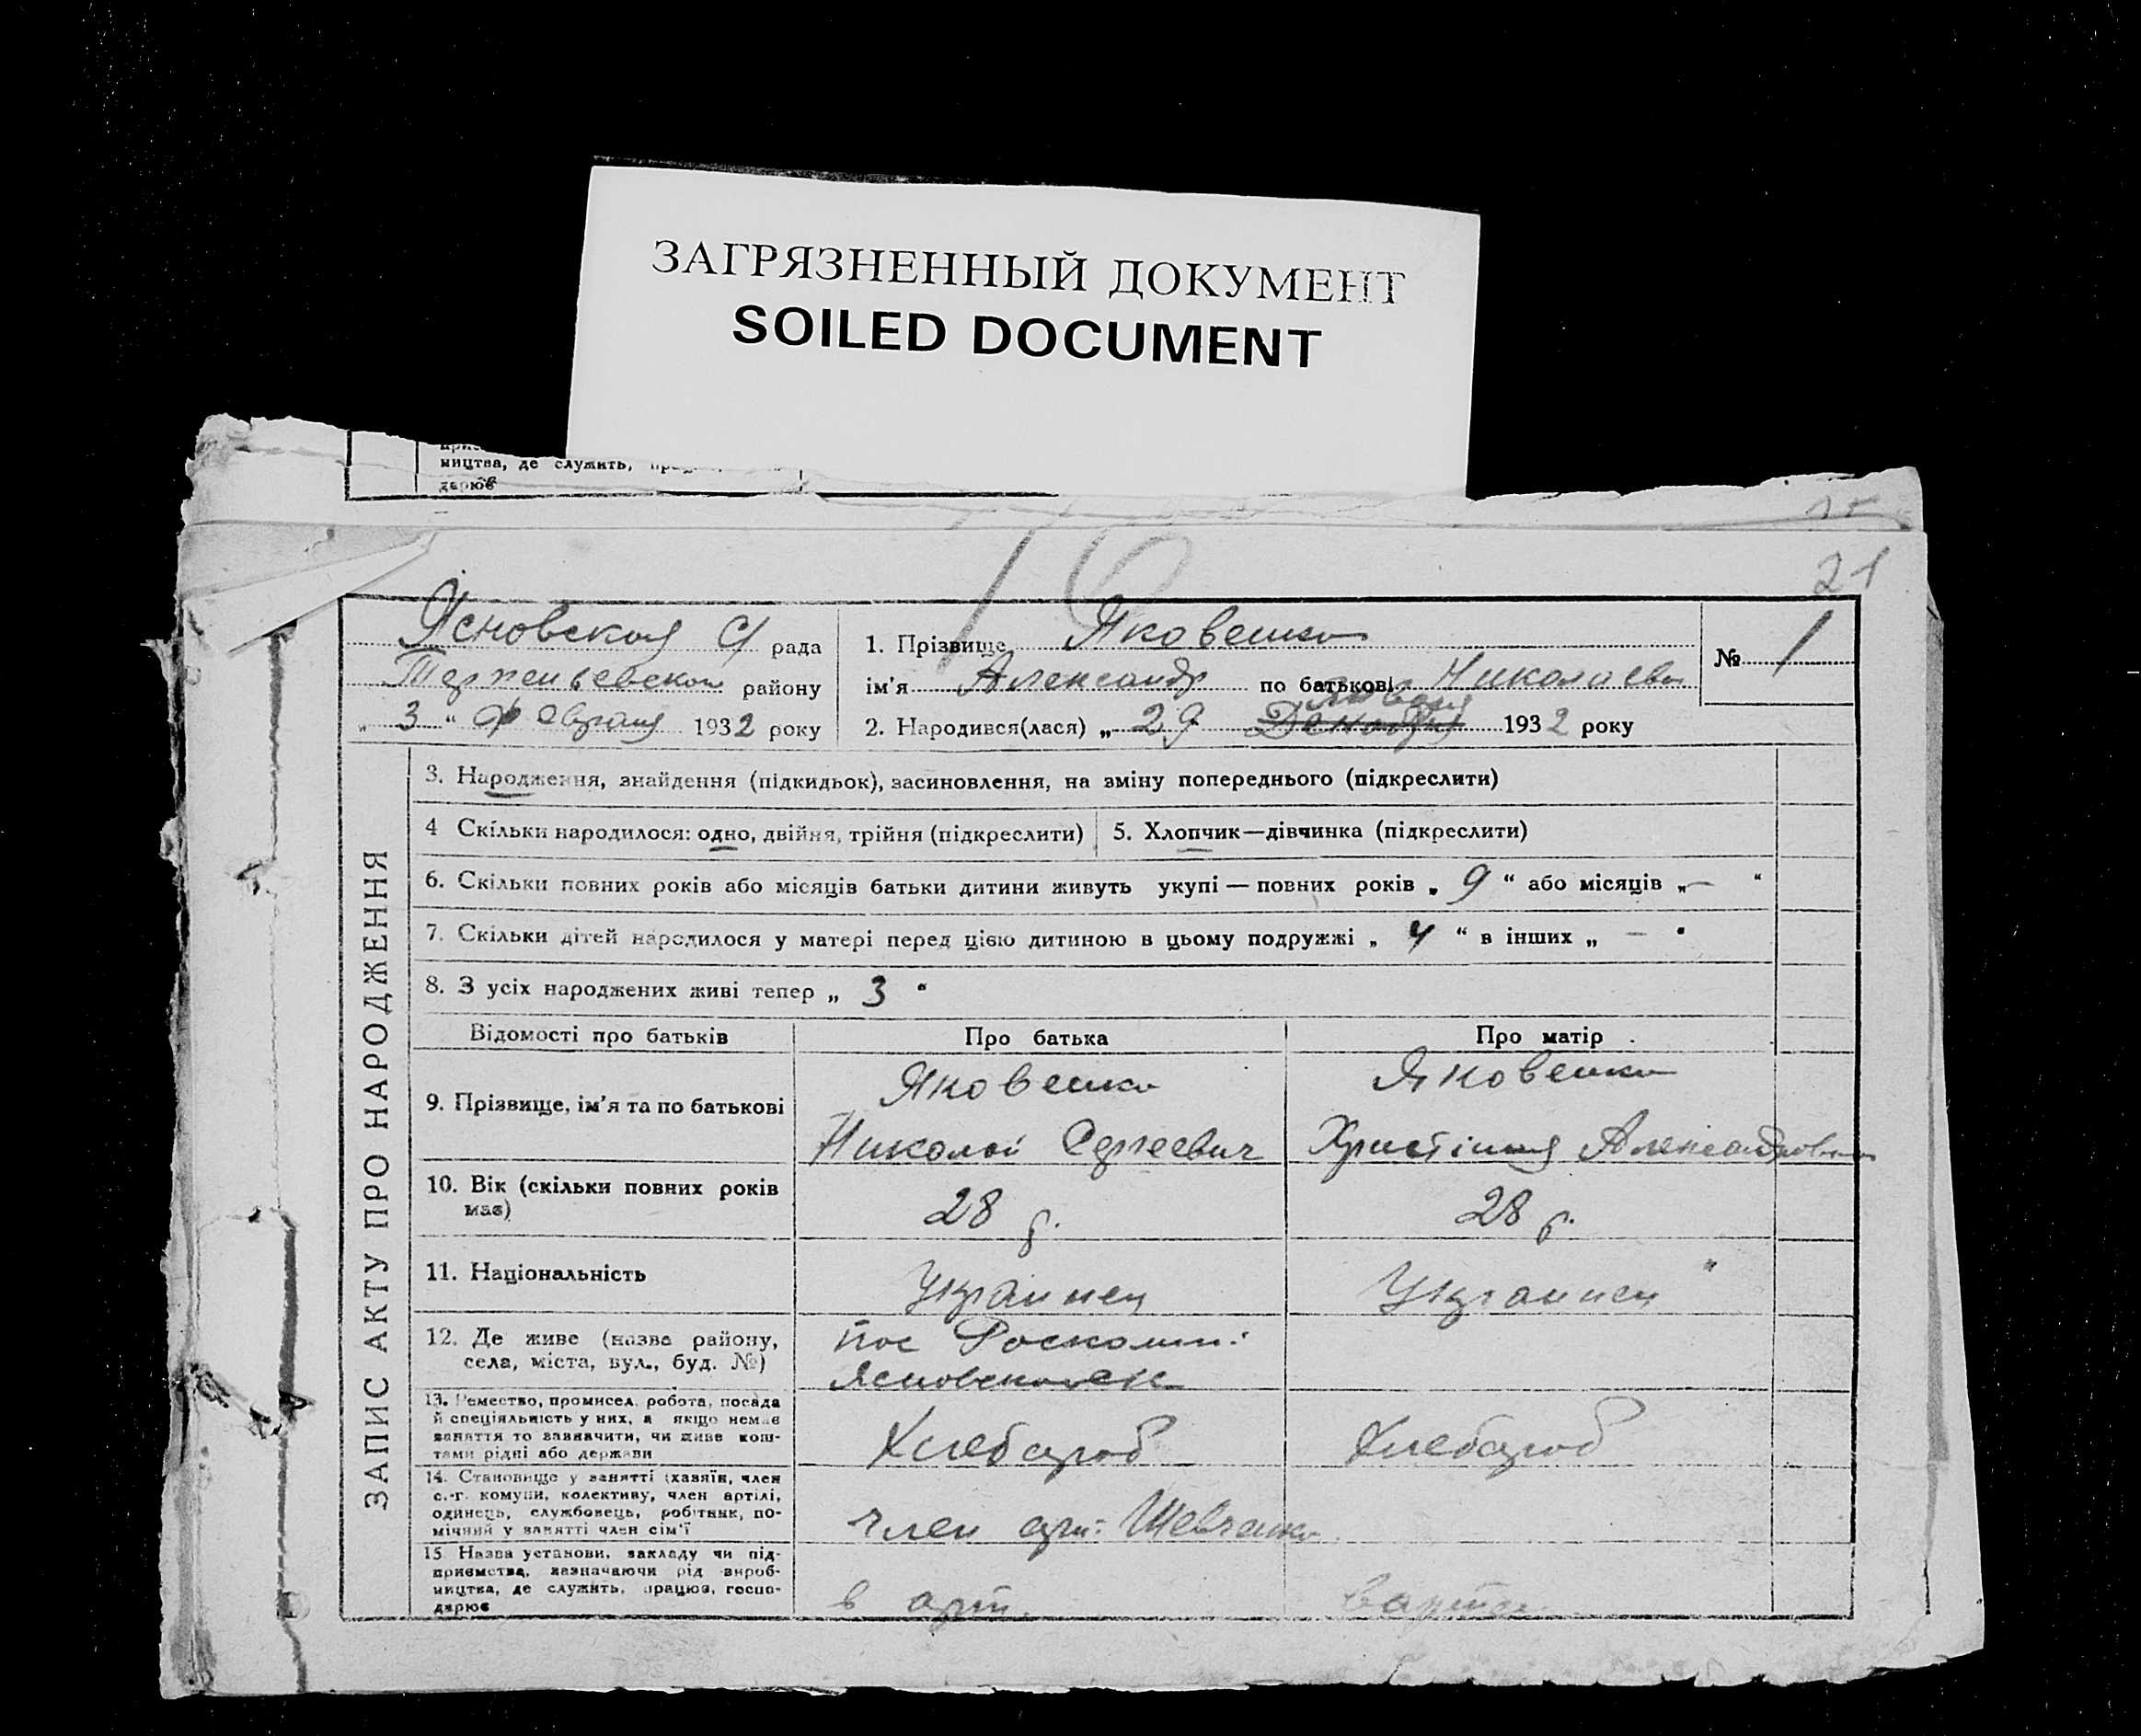 ЗАГРЯЗНЕННЫЙ ДОКУМЕНТ
SOILED DOCUMENT
ництва, де служить,
дарює
15
16
21
Ясновская С/ рада
Терпеньевском району
„ 3 “ Февраля 1932 року
1. Прізвище Яковенко
ім'я Александр по батькові Николаев
Января
2. Народився(лася) „ 29 Декабря 1932 року
№ 1
ЗАПИС АКТУ ПРО НАРОДЖЕННЯ
3. Народження, знайдення (підкидьок), засиновлення, на зміну попереднього (підкреслити)
4 Скільки народилося: одно, двійня, трійня (підкреслити)
5. Хлопчик—дівчинка (підкреслити)
6. Скільки повних років або місяців батьки дитини живуть укупі — повних років „ 9 “ або місяців „ — “
7. Скільки дітей народилося у матері перед цією дитиною в цьому подружжі „ 4 “ в інших „ — “
8. З усіх народжених живі тепер „ 3 “
Відомості про батьків
Про батька
Про матір
9. Прізвище, ім'я та по батькові
Яковенко
Николай Сергеевич
Яковенко
Христиния Александровна
10. Вік (скільки повних років
має)
28 г.
28 г.
11. Національність
Украинец
Украинец "
12. Де живе (назва району,
села, міста, вул., буд. №)
пос Роскоши:
13. Ремество, промисел, робота, посада
й спеціяльність у них, а якщо немає
заняття то зазначити, чи живе кош-
тами рідні або держави
Хлебороб
Хлебороб
14. Становище у занятті (хазяїн, член
с.-г. комуни, колективу, член артілі,
одинець, службовець, робітник, по-
мічний у занятті член сім'ї
член арт: Шевченко
15. Назва установи, закладу чи під-
приємства, зазначаючи рід вироб-
ництва, де служить, працює, госпо-
дарює
в арт.
в арте